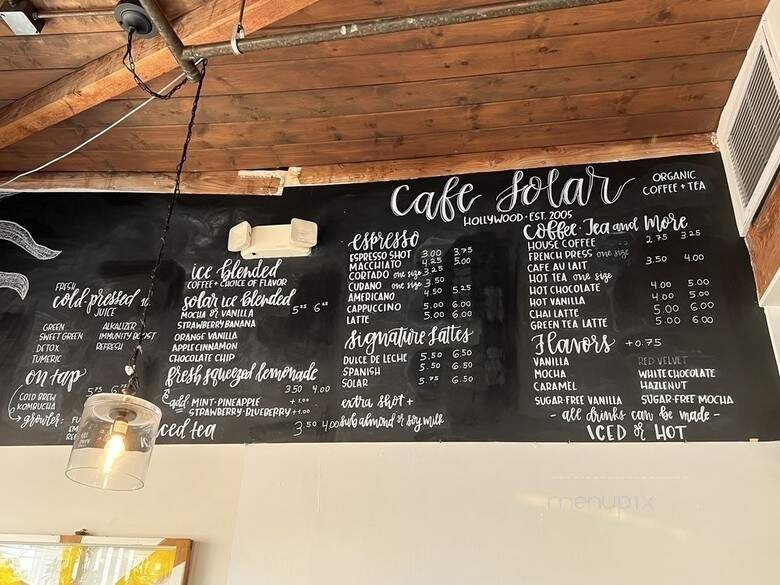 Cafe Solar
HOLLYWOOD · EST. 2005
ORGANIC
COFFEE + TEA
FRESH
cold pressed
JUICE
GREEN
SWEET GREEN
DETOX
TUMERIC
ALKALIZER
IMMUNITY BOOST
REFRESH
on tap
COLD BREW
KOMBUCHA
growler:
ice blended
COFFEE + CHOICE OF FLAVOR
solar ice blended
MOCHA or VANILLA
STRAWBERRY BANANA
ORANGE VANILLA
APPLE CINNAMON
CHOCOLATE CHIP
fresh squeezed lemonade
3.50 4.00
add MINT · PINEAPPLE +1.00
STRAWBERRY · BLUEBERRY +1.00
iced tea 3.50 4.00
espresso
ESPRESSO SHOT 3.00 3.75
MACCHIATO 4.25 5.00
CORTADO one size 3.25
CUBANO one size 3.50
AMERICANO 4.50 5.25
CAPPUCCINO 5.00 6.00
LATTE 5.00 6.00
Signature Lattes
DULCE DE LECHE 5.50 6.50
SPANISH 5.50 6.50
SOLAR 5.75 6.50
extra shot +
sub almond or soy milk
Coffee · Tea and More
HOUSE COFFEE 2.75 3.25
FRENCH PRESS one size
CAFE AU LAIT 3.50 4.00
HOT TEA one size
HOT CHOCOLATE 4.00 5.00
HOT VANILLA 4.00 5.00
CHAI LATTE 5.00 6.00
GREEN TEA LATTE 5.00 6.00
Flavors +0.75
VANILLA
MOCHA
CARAMEL
SUGAR-FREE VANILLA
RED VELVET
WHITE CHOCOLATE
HAZLENUT
SUGAR-FREE MOCHA
- all drinks can be made -
ICED or HOT
menupix